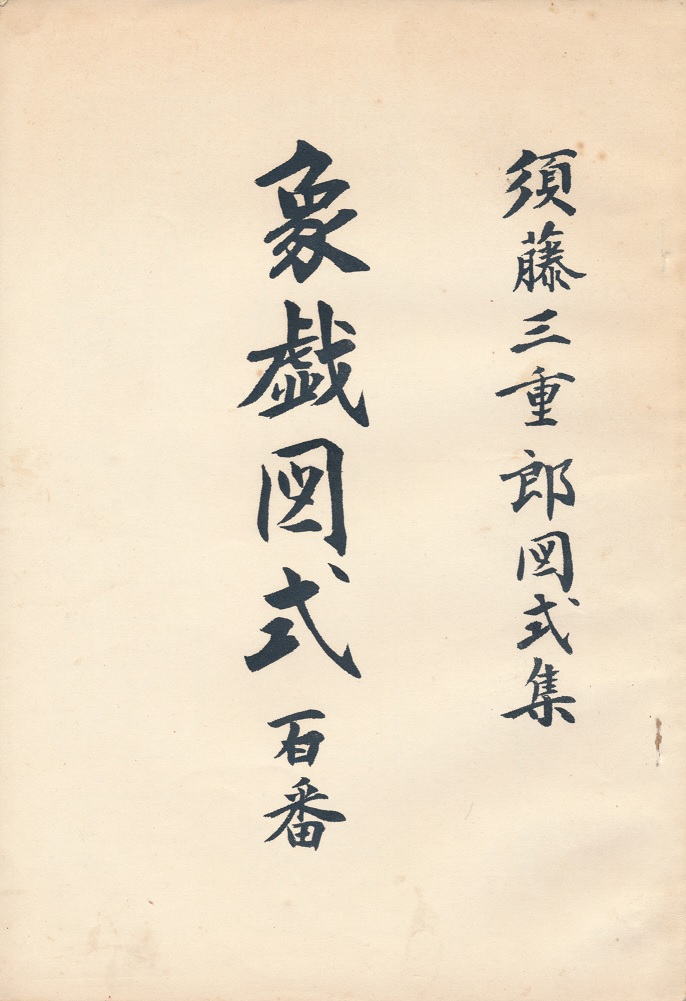 須藤三重郎図式集
象戯図式 百番